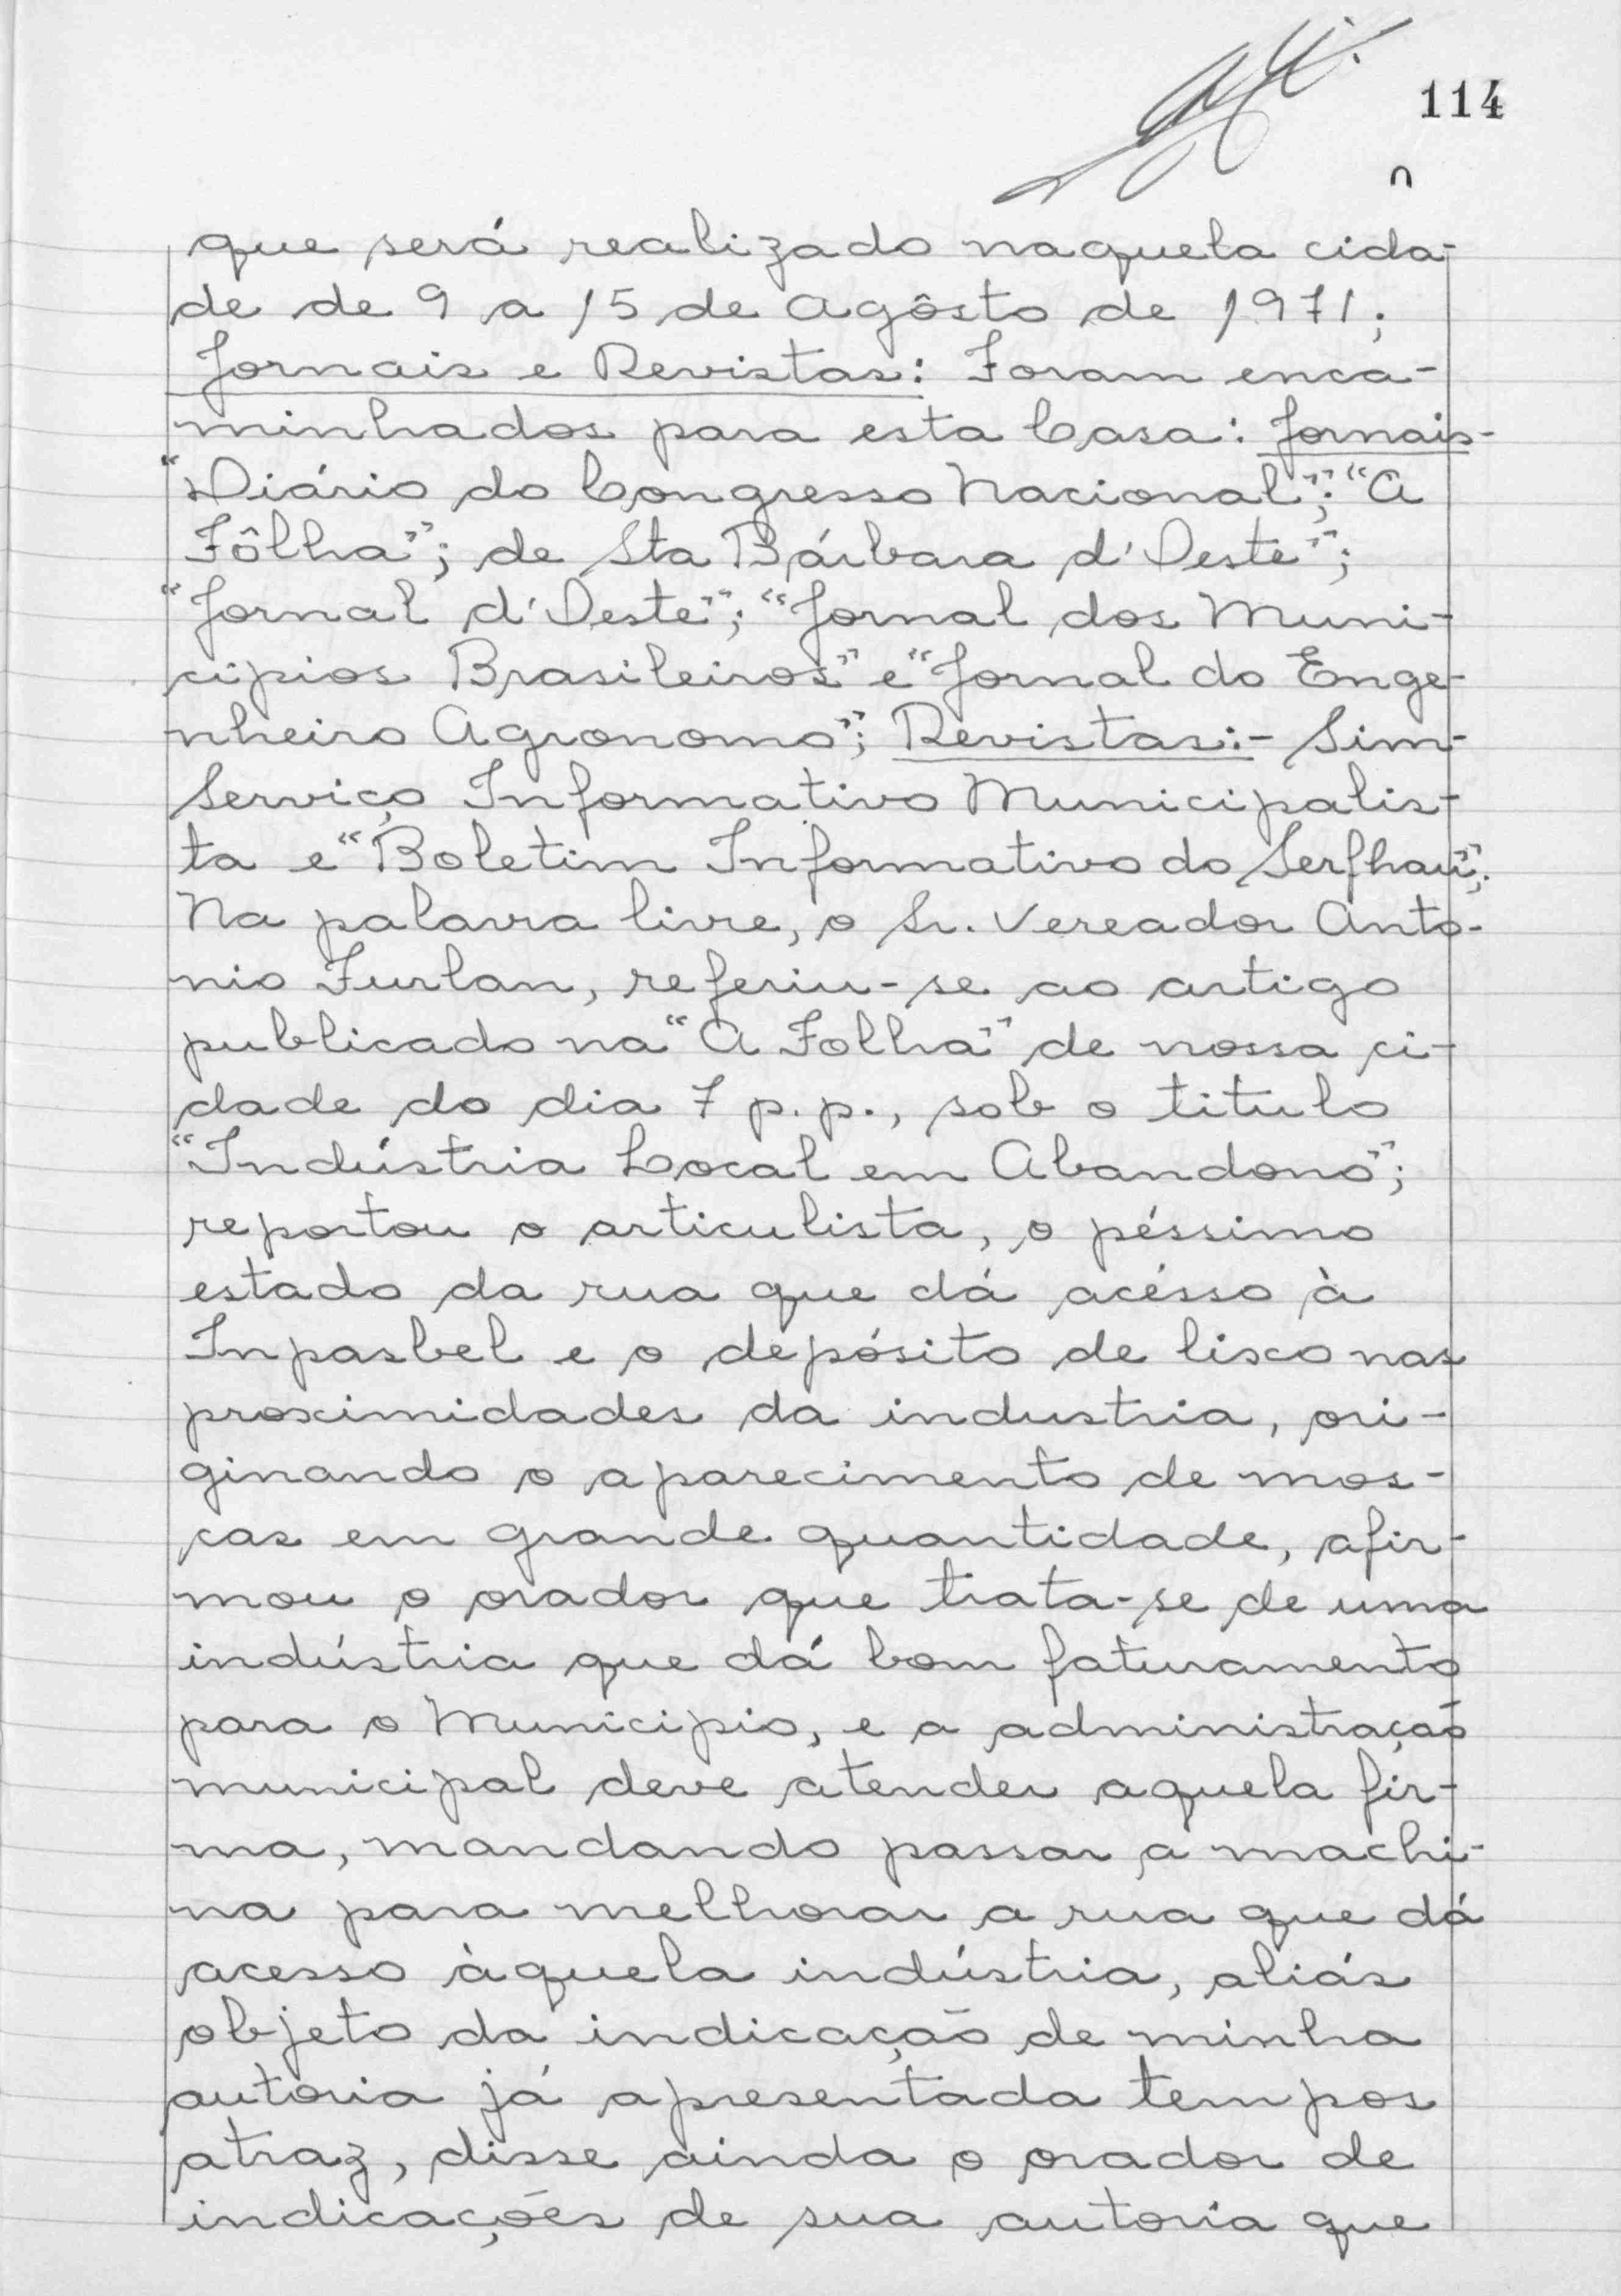 114
que será realizado naquela cida-
de de 9 a 15 de Agôsto de 1971;
Jornais e Revistas: Foram enca-
minhados para esta Casa: Jornais-
"Diário do Congresso Nacional"; "A
Fôlha"; de Sta Bárbara d'Oeste";
"Jornal d'Oeste"; "Jornal dos Muni-
cipios Brasileiros" e "Jornal do Enge-
nheiro Agronomo"; Revistas:- Sim-
Serviço Informativo Municipalis-
ta e "Boletim Informativo do Serfhau";
Na palavra livre, o Sr. Vereador Anto-
nio Furlan, referiu-se ao artigo
publicado na "A Folha" de nossa ci-
dade do dia 7 p.p., sob o titulo
"Indústria Local em Abandono";
reportou o articulista, o péssimo
estado da rua que dá acésso à
Inpasbel e o depósito de lixo nas
proximidades da industria, ori-
ginando o aparecimento de mos-
cas em grande quantidade, afir-
mou o orador que trata-se de uma
indústria que dá bom faturamento
para o Municipio, e a administração
municipal deve atender aquela fir-
ma, mandando passar a machi-
na para melhorar a rua que dá
acesso àquela indústria, aliás
objeto da indicação de minha
autoria já apresentada tempos
atraz, disse ainda o orador de
indicações de sua autoria que